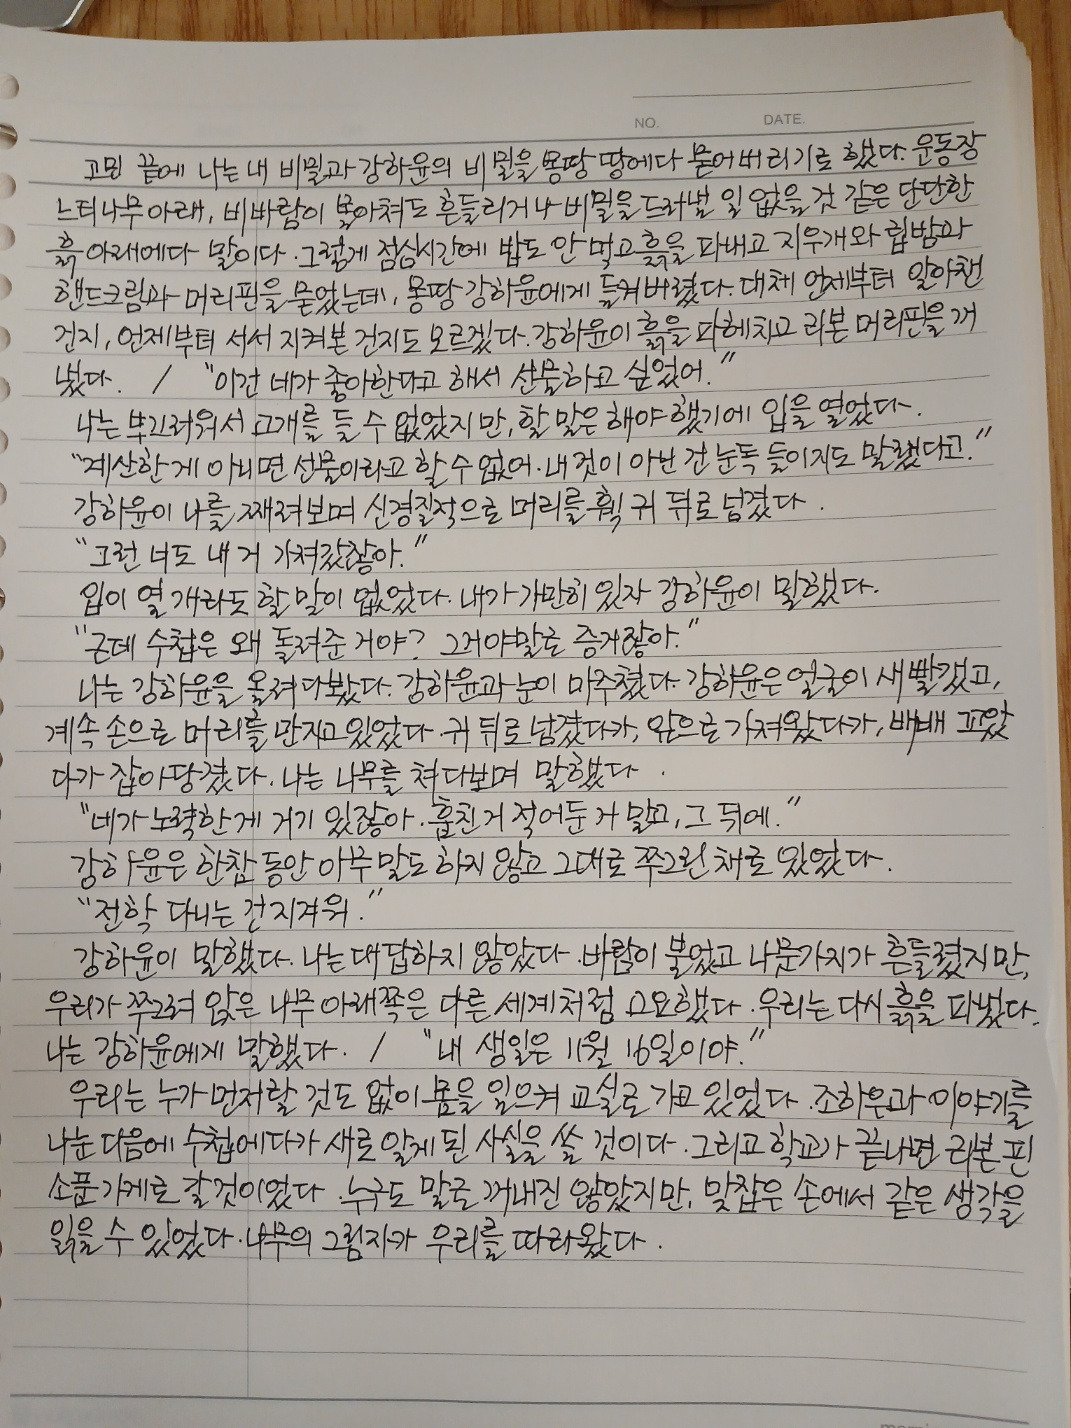 NO. DATE.
고민 끝에 나는 내 비밀과 강하윤의 비밀을 몽땅 땅에다 묻어버리기로 했다. 운동장
느티나무 아래, 비바람이 몰아쳐도 흔들리거나 비밀을 드러낼 일 없을 것 같은 단단한
흙 아래에다 말이다. 그렇게 점심시간에 밥도 안 먹고 흙을 파내고 지우개와 립밤과
핸드크림과 머리핀을 묻었는데, 몽땅 강하윤에게 들켜버렸다. 대체 언제부터 알아챈
건지, 언제부터 서서 지켜본 건지도 모르겠다. 강하윤이 흙을 파헤치고 리본 머리핀을 꺼
냈다. / "이건 네가 좋아한다고 해서 선물하고 싶었어."
나는 부끄러워서 고개를 들 수 없었지만, 할 말은 해야 했기에 입을 열었다.
"계산한 게 아니면 선물이라고 할 수 없어. 내 것이 아닌 건 눈독 들이지도 말랬다고."
강하윤이 나를 째려보며 신경질적으로 머리를 휙 귀 뒤로 넘겼다.
"그런 너도 내 거 가져갔잖아."
입이 열 개라도 할 말이 없었다. 내가 가만히 있자 강하윤이 말했다.
"근데 수첩은 왜 돌려준 거야? 그거야말로 증거잖아."
나는 강하윤을 올려다봤다. 강하윤과 눈이 마주쳤다. 강하윤은 얼굴이 새빨갰고,
계속 손으로 머리를 만지고 있었다. 귀 뒤로 넘겼다가, 앞으로 가져왔다가, 배배 꼬았
다가 잡아당겼다. 나는 나무를 쳐다보며 말했다.
"네가 노력한 게 거기 있잖아. 훔친 거 적어둔 거 말고, 그 뒤에."
강하윤은 한참 동안 아무 말도 하지 않고 그대로 쭈그린 채로 있었다.
"전학 다니는 건 지겨워."
강하윤이 말했다. 나는 대답하지 않았다. 바람이 불었고 나뭇가지가 흔들렸지만,
우리가 쭈그려 앉은 나무 아래쪽은 다른 세계처럼 고요했다. 우리는 다시 흙을 파냈다.
나는 강하윤에게 말했다. / "내 생일은 11월 16일이야."
우리는 누가 먼저랄 것도 없이 몸을 일으켜 교실로 가고 있었다. 조하은과 이야기를
나눈 다음에 수첩에다가 새로 알게 된 사실을 쓸 것이다. 그리고 학교가 끝나면 리본 핀
소품가게로 갈 것이었다. 누구도 말로 꺼내진 않았지만, 맞잡은 손에서 같은 생각을
읽을 수 있었다. 나무의 그림자가 우리를 따라왔다.